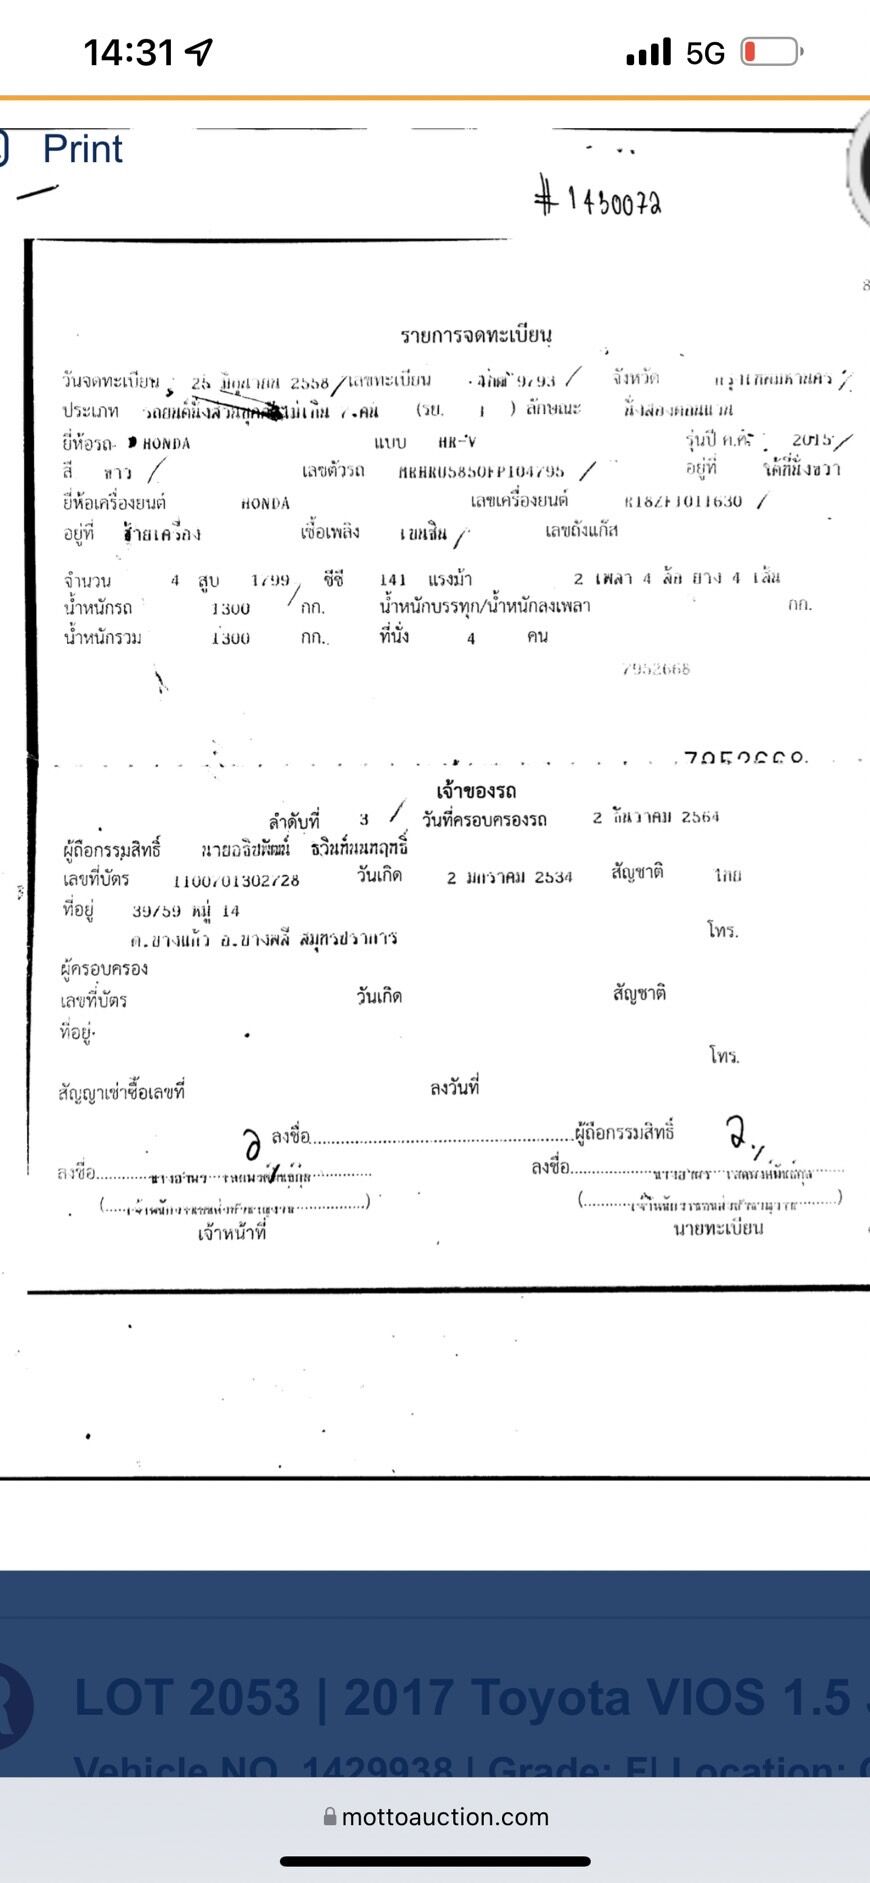 14:31 5G
Print
#1430072
รายการจดทะเบียน
วันจดทะเบียน 25 มิถุนายน 2558 เลขทะเบียน 9793 จังหวัด กรุงเทพมหานคร
ประเภท รถยนต์นั่งส่วนบุคคลไม่เกิน 7 คน (รย. 1 ) ลักษณะ นั่งสองตอนแวน
ยี่ห้อรถ HONDA แบบ HR-V รุ่นปี ค.ศ. 2015
สี ขาว เลขตัวรถ MRHRU5850FP104795 อยู่ที่ ใต้ที่นั่งขวา
ยี่ห้อเครื่องยนต์ HONDA เลขเครื่องยนต์ R18ZF1011630
อยู่ที่ ซ้ายเครื่อง เชื้อเพลิง เบนซิน เลขถังแก๊ส
จำนวน 4 สูบ 1799 ซีซี 141 แรงม้า 2 เพลา 4 ล้อ ยาง 4 เส้น
น้ำหนักรถ 1300 กก. น้ำหนักบรรทุก/น้ำหนักลงเพลา กก.
น้ำหนักรวม 1300 กก. ที่นั่ง 4 คน
7952668
เจ้าของรถ
ลำดับที่ 3 วันที่ครอบครองรถ 2 ธันวาคม 2564
ผู้ถือกรรมสิทธิ์
เลขที่บัตร 1100701302728 วันเกิด 2 มกราคม 2534 สัญชาติ ไทย
ที่อยู่ 39/59 หมู่ 14
ต.บางแก้ว อ.บางพลี สมุทรปราการ โทร.
ผู้ครอบครอง
เลขที่บัตร วันเกิด สัญชาติ
ที่อยู่
โทร.
สัญญาเช่าซื้อเลขที่ ลงวันที่
ลงชื่อ ผู้ถือกรรมสิทธิ์
ลงชื่อ ลงชื่อ
เจ้าหน้าที่ นายทะเบียน
LOT 2053 | 2017 Toyota VIOS 1.5
Vehicle NO. 1429938 | Grade: F| Location:
mottoauction.com